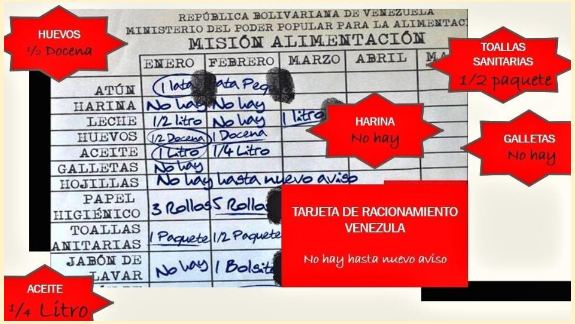 HUEVOS
1/2 Docena
REPÚBLICA BOLIVARIANA DE VENEZUELA
MINISTERIO DEL PODER POPULAR PARA LA ALIMENTAC
MISIÓN ALIMENTACIÓN
ENERO FEBRERO MARZO ABRIL MA
ATÚN 1 lata lata Peq
HARINA No hay No hay
LECHE 1/2 litro No hay 1 litro
HUEVOS 1/2 Docena 1 Docena
ACEITE 1 Litro 1/4 Litro
GALLETAS No hay
HOJILLAS No hay hasta nuevo aviso
PAPEL HIGIÉNICO 3 Rollos 5 Rollos
TOALLAS ANITARIAS 1 Paquete 1/2 Paquete
JABÓN DE LAVAR No hay 1 Bolsit
TOALLAS
SANITARIAS
1/2 paquete
HARINA
No hay
GALLETAS
No hay
TARJETA DE RACIONAMIENTO
VENEZULA
No hay hasta nuevo aviso
ACEITE
1/4 Litro